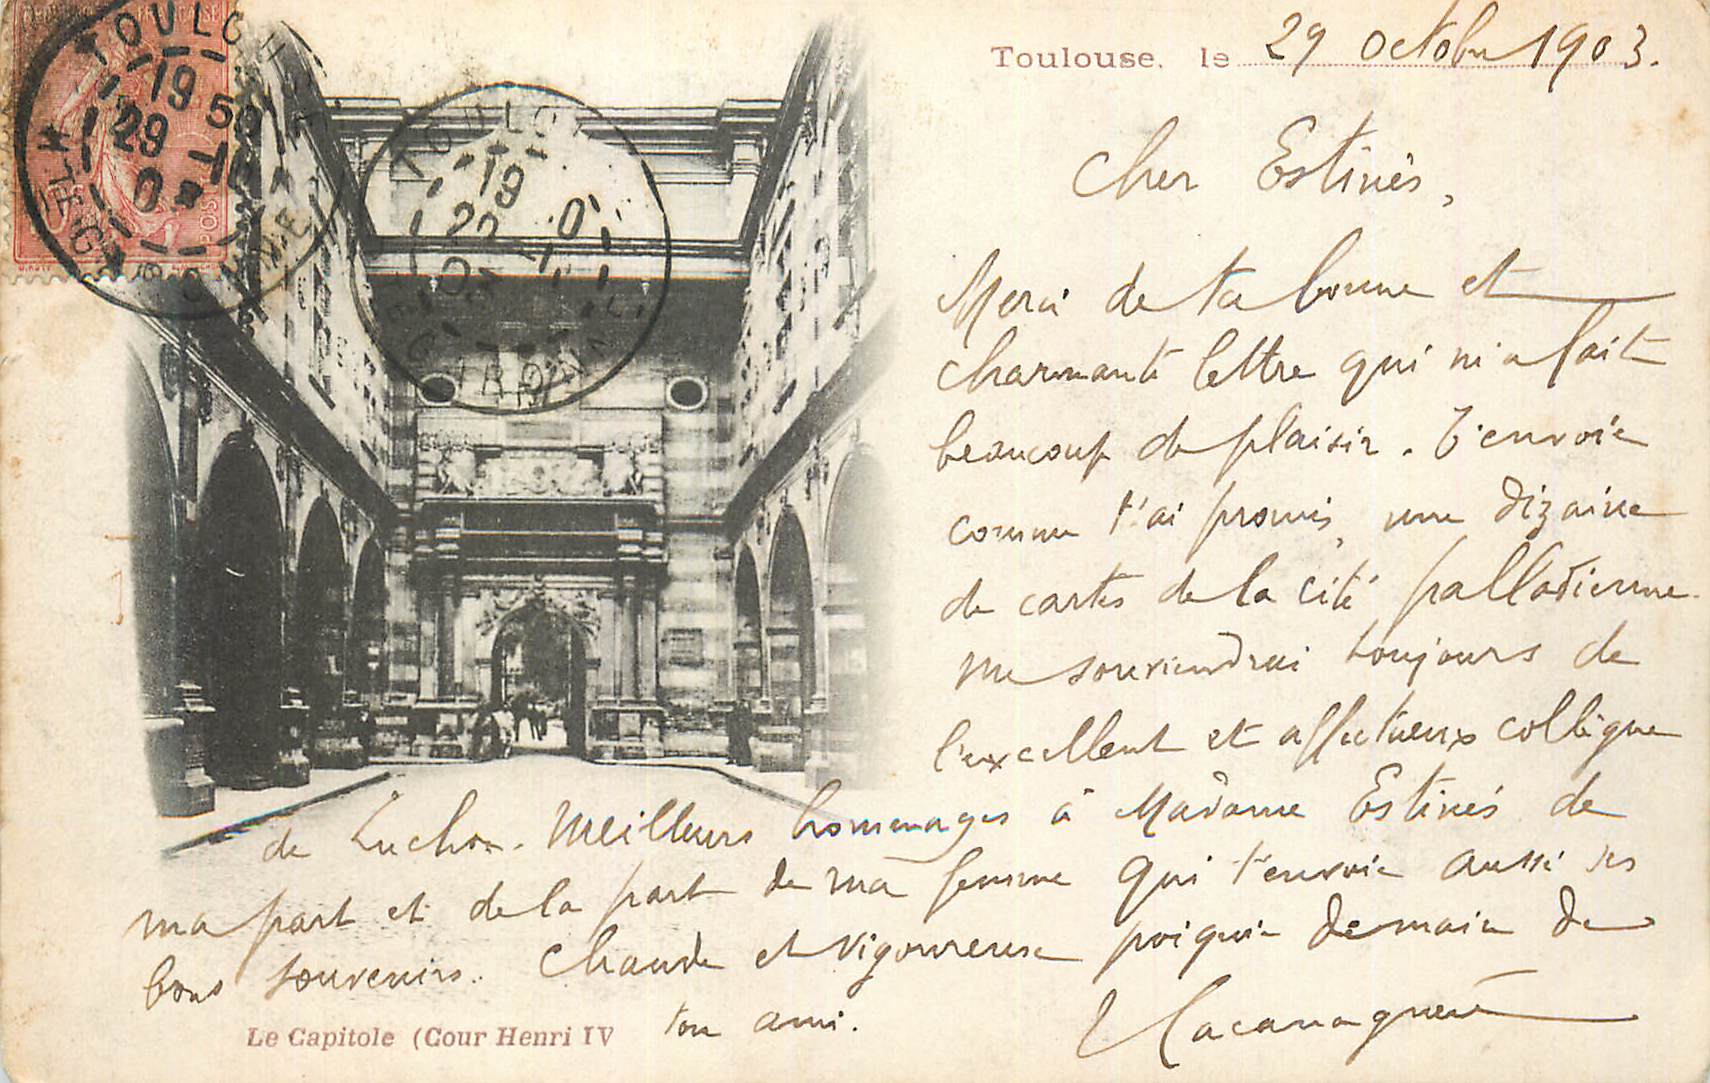 Toulouse, le 29 octobre 1903.
Cher Estinès,
Merci de ta bonne et
charmante lettre qui m'a fait
beaucoup de plaisir. J'envoie
comme t'ai promis, une dizaine
de cartes de la cité palladienne.
me souviendrai toujours de
l'excellent et affectueux collègue
de Luchon. Meilleurs hommages à Madame Estinès de
ma part et de la part de ma femme qui t'envoie aussi ses
bons souvenirs. Chaude et vigoureuse poignée de main de
ton ami.
Le Capitole (Cour Henri IV
TOULOUSE
19
29
HTE GARONNE
TOULOUSE
19
GARONNE
POSTES